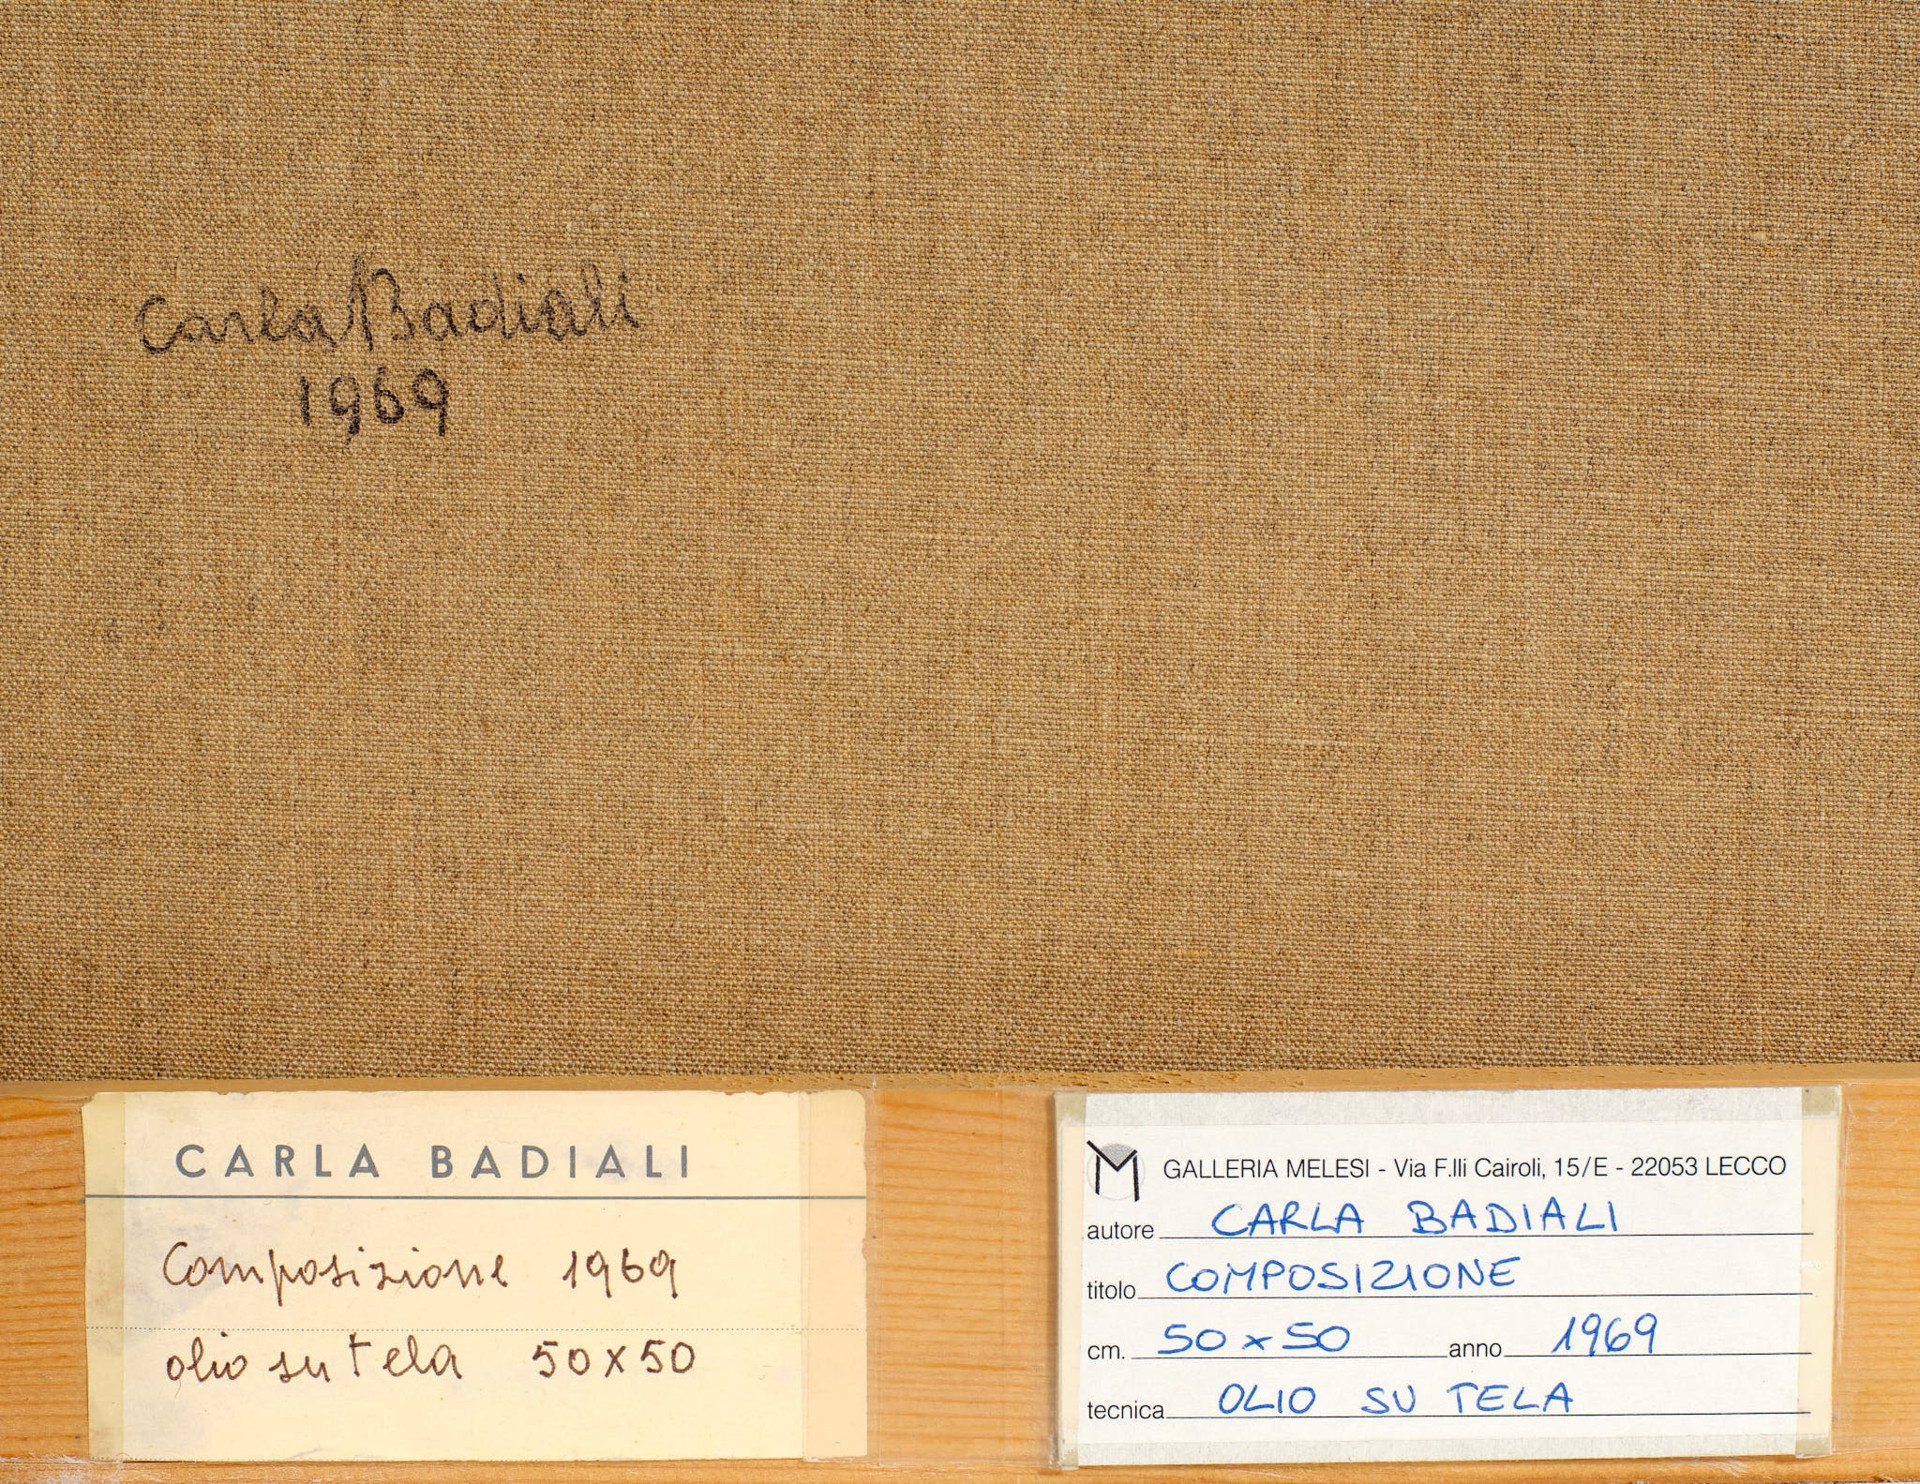 Carla Badiali
1969
CARLA BADIALI
Composizione 1969
olio su tela 50x50
M GALLERIA MELESI - Via F.lli Cairoli, 15/E - 22053 LECCO
autore CARLA BADIALI
titolo COMPOSIZIONE
cm. 50 x 50 anno 1969
tecnica OLIO SU TELA